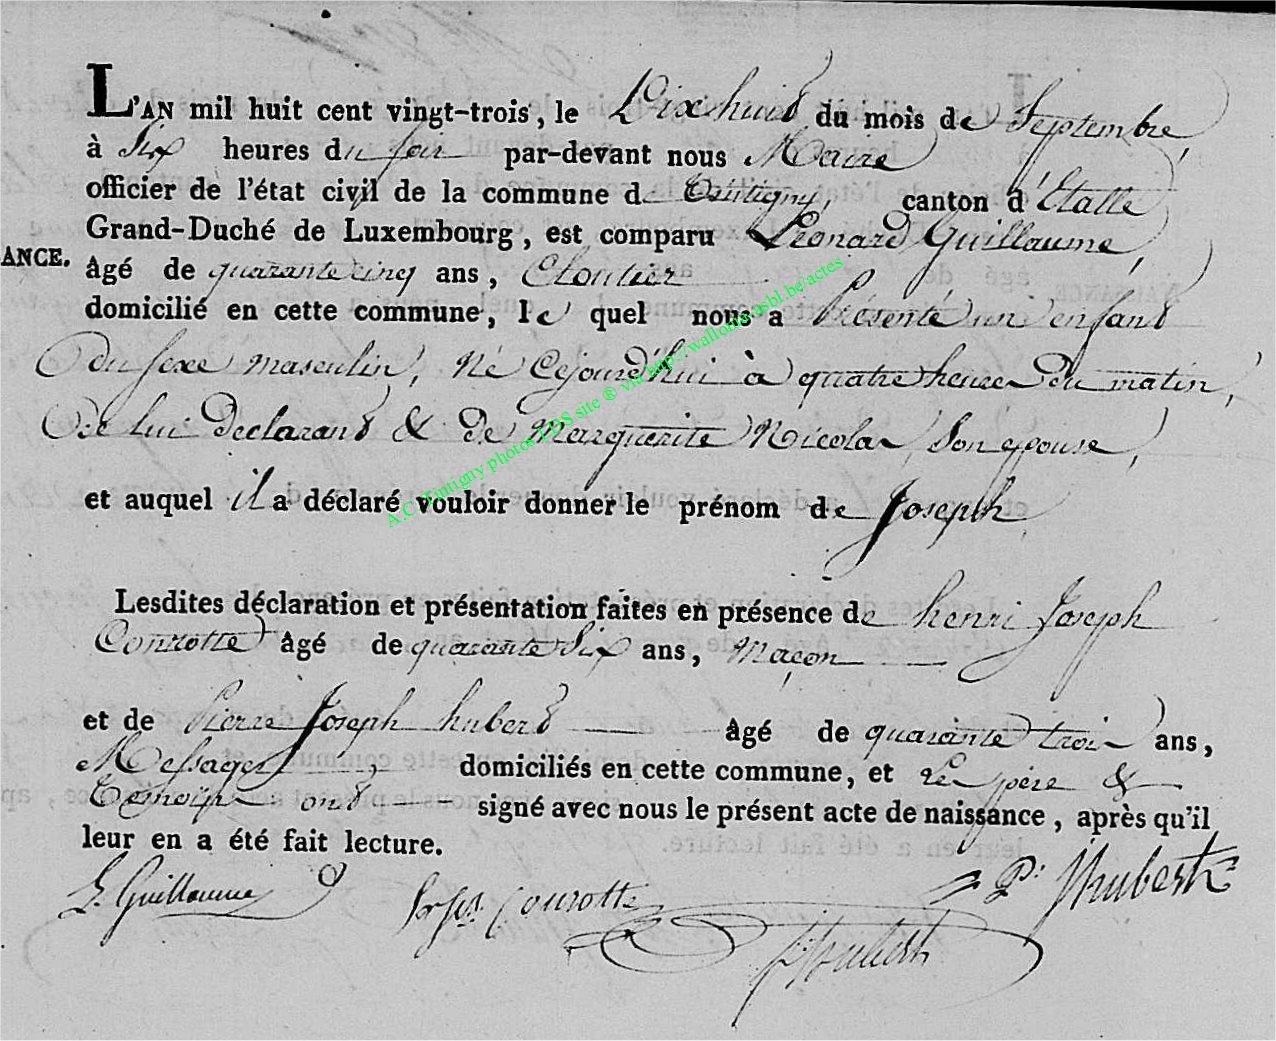 L'AN mil huit cent vingt-trois, le Dixhuit du mois de Septembre,
à Six heures du soir par-devant nous Maire
officier de l'état civil de la commune de Tintigny, canton d'Etalle
Grand-Duché de Luxembourg, est comparu Léonard Guillaume,
ANCE.
âgé de quarante cinq ans, Cloutier
domicilié en cette commune, le quel nous a Présenté un enfant
Du sexe masculin, Né Cejourd'hui à quatre heures Du matin,
De lui Declarant & De Marguerite Nicolas, Son epouse,
et auquel il a déclaré vouloir donner le prénom de Joseph
A.C. Tintigny photos LDS site ® via http://wallonia.asbl.be/actes
Lesdites déclaration et présentation faites en présence de henri Joseph
Conrotte âgé de quarante Six ans, Maçon
et de Pierre Joseph hubert âgé de quarante trois ans,
Messager domiciliés en cette commune, et Le père &
Temoins ont signé avec nous le présent acte de naissance, après qu'il
leur en a été fait lecture.
L. Guillaume Conrotte P. J hubert
hubert